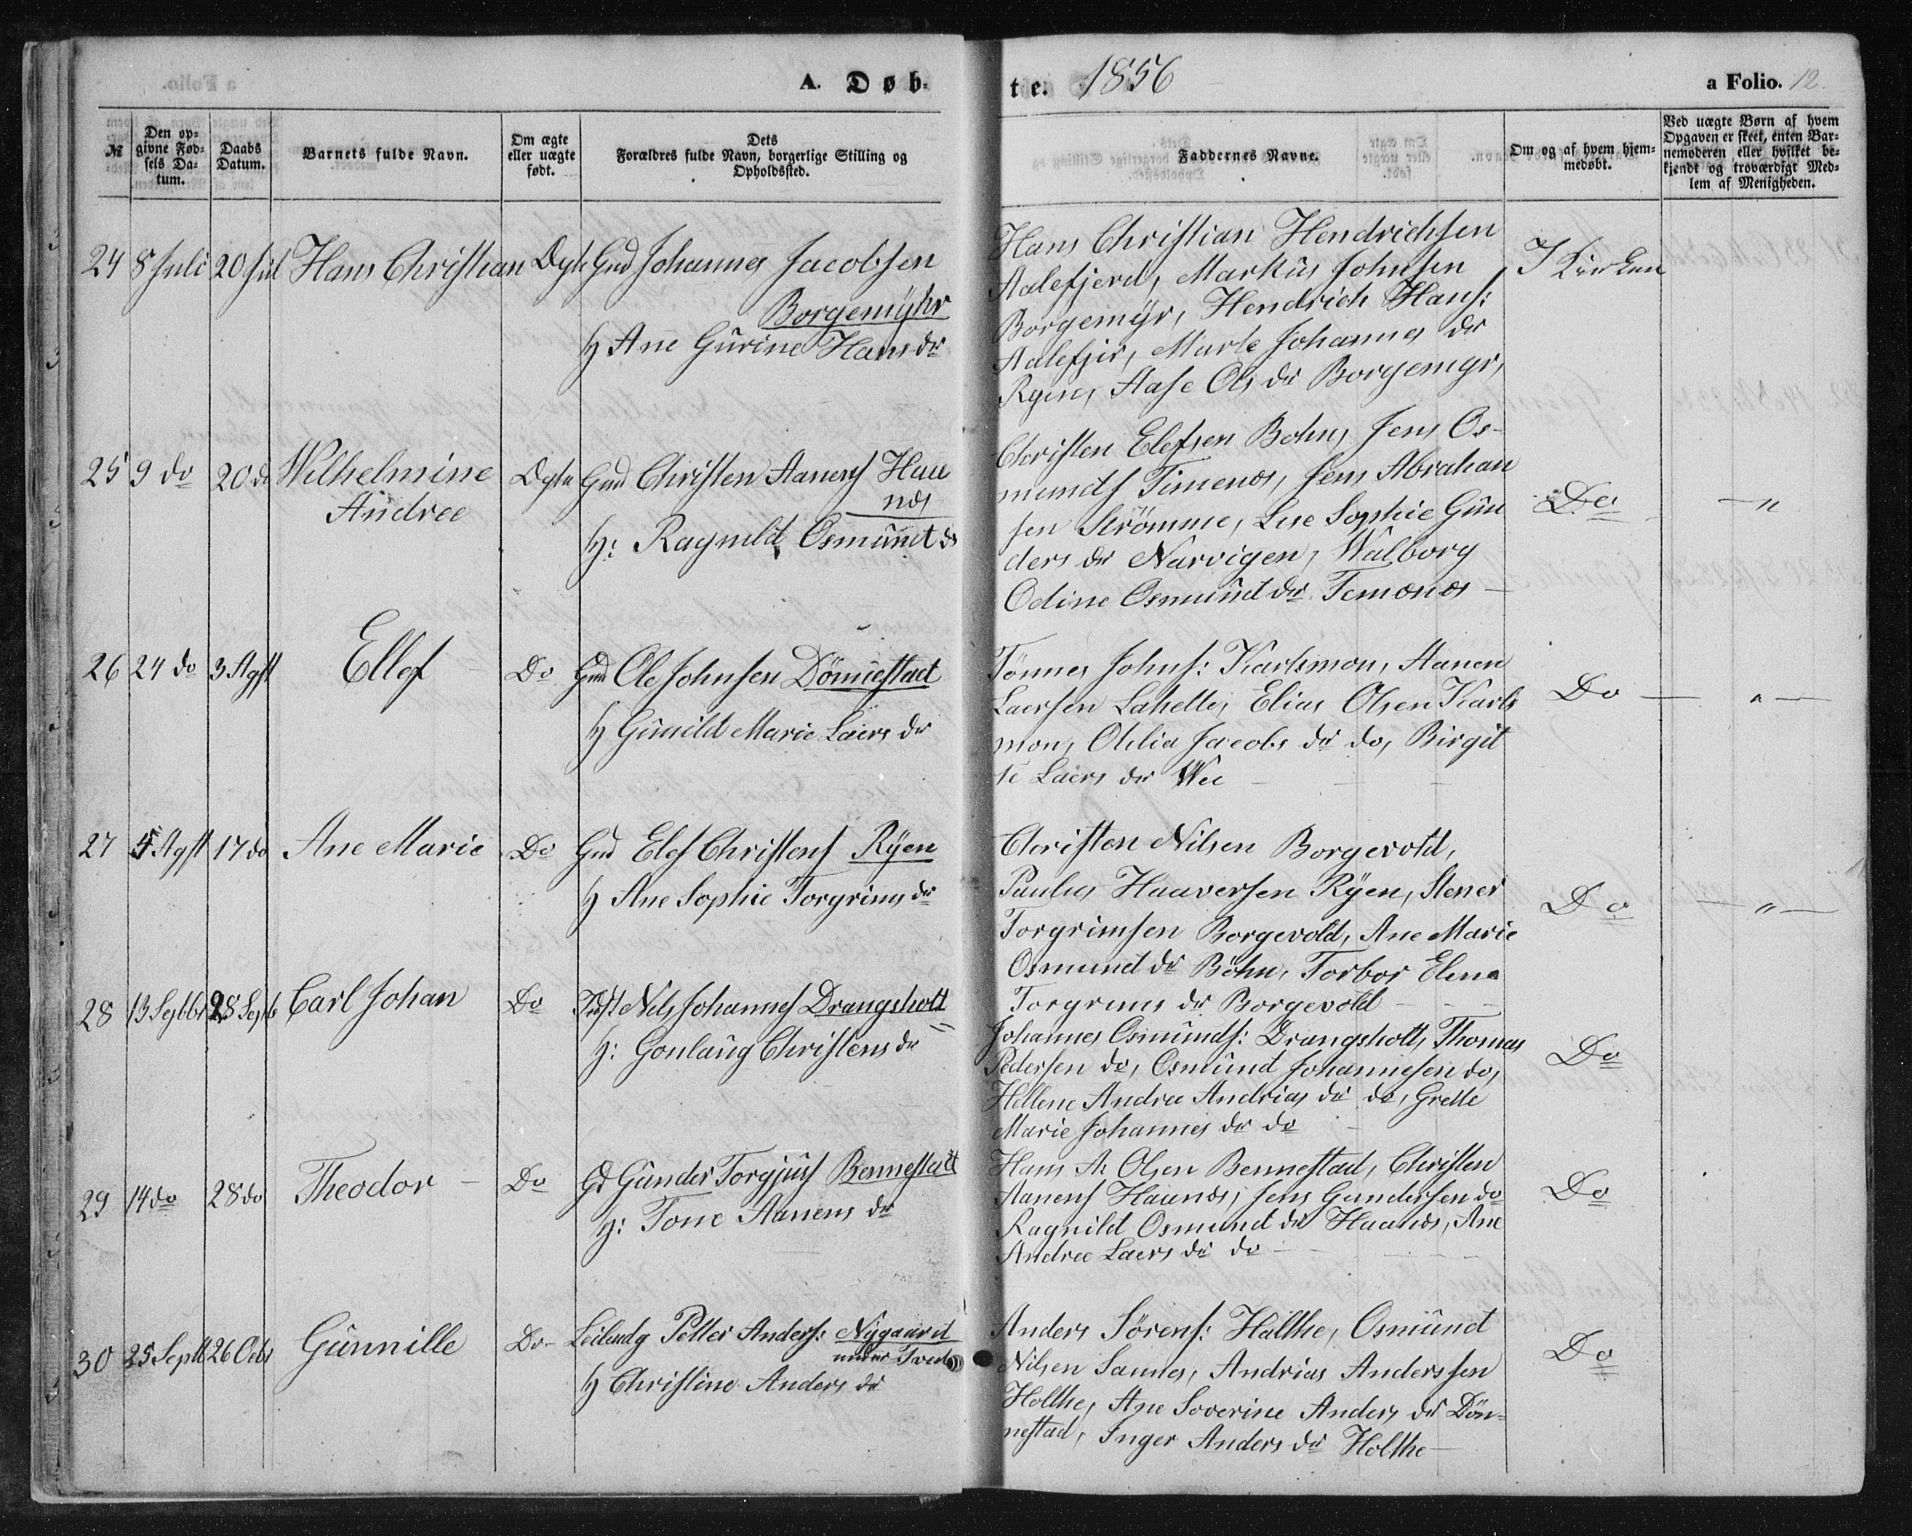 A. Døb-
te. 1856
a Folio. 12.
№
Den op-
givne Fød-
sels Da-
tum.
Daabs
Datum.
Barnets fulde Navn.
Om ægte
eller uægte
født.
Dets
Forældres fulde Navn, borgerlige Stilling og
Opholdssted.
Faddernes Navne.
Om og af hvem hjem-
medøbt.
Ved uægte Børn af hvem
Opgaven er skeet, enten Bar-
nemoderen eller hvilket be-
kjendt og troværdigt Med-
lem af Menigheden.
24 8 Juli 20 Jul Hans Christian Ægte Gmd Johannes Jacobsen
Borgemyhr
H Ane Gurine Hans dr
Hans Christian Hendrichsen
Aalefjerd, Markus Johnsen
Borgemyr, Hendrich Hans:
Aalefjer, Marte Johannes dr
Ryen, Aase Ols dr Borgemyr,
I Kirken
25 9 do 20 do Wilhelmine
Andrea
Ægte Gmd Christen Aanens Haa
næs
H: Ragnild Osmund dr
Christen Elefsen Bohn, Jens Os-
munds Timenæs, Jens Abraham
sen Strömme, Lise Sophie Gun
ders dr Narvigen, Walborg
Odine Osmund dr Temænæs
Do
— "
26 24 do 3 Agst Ellef Do Gmd Ole Johnsen Dönnestad
H Gunild Marie Laers dr
Tönnes Johns: Karlsmon, Aanen
Laersen Lahelle, Elias Olsen Karls
mon, Otilia Jacobs dr do, Birgit
te Laers dr Wee
Do — " —
27 5 Agst 17 do Ane Marie Do Gmd Elef Christens Ryen
H Ane Sophie Torgrims dr
Christen Nilsen Borgevold,
Paulus Haaversen Ryen, Stener
Torgrimsen Borgevold, Ane Marie
Osmund dr Böhn, Torbor Elena
Torgrims dr Borgevold
Do
— " —
28 13 Septbr 28 Septb Carl Johan Do Nils Johannes Drangsholt
H: Gonlaug Christens dr
Johannes Osmunds: Drangsholt, Thomas
Pedersen do, Osmund Johannesen do,
Hellene Andrea Andrias dr do, Grette
Marie Johannes dr do
Do
29 14 do 28 do Theodor Do Gd Gunder Torgjus Bennestad
H: Tone Aanens dr
Hans A. Olsen Bennestad, Christen
Aanens Haanæs, Jens Gundersen do
Ragnild Osmund dr Haanæs, Ane
Andrea Laers dr do
Do
30 25 Septb 26 Octb Günnille Do Leilendg Petter Anders: Nygaard
under Tveit
H Christine Anders dr
Anders Sörens: Holthe, Osmünd
Nilsen Sannes, Andrias Anderssen
Holthe, Ane Soverine Anders dr Dön-
nestad, Inger Anders dr Holthe
Do